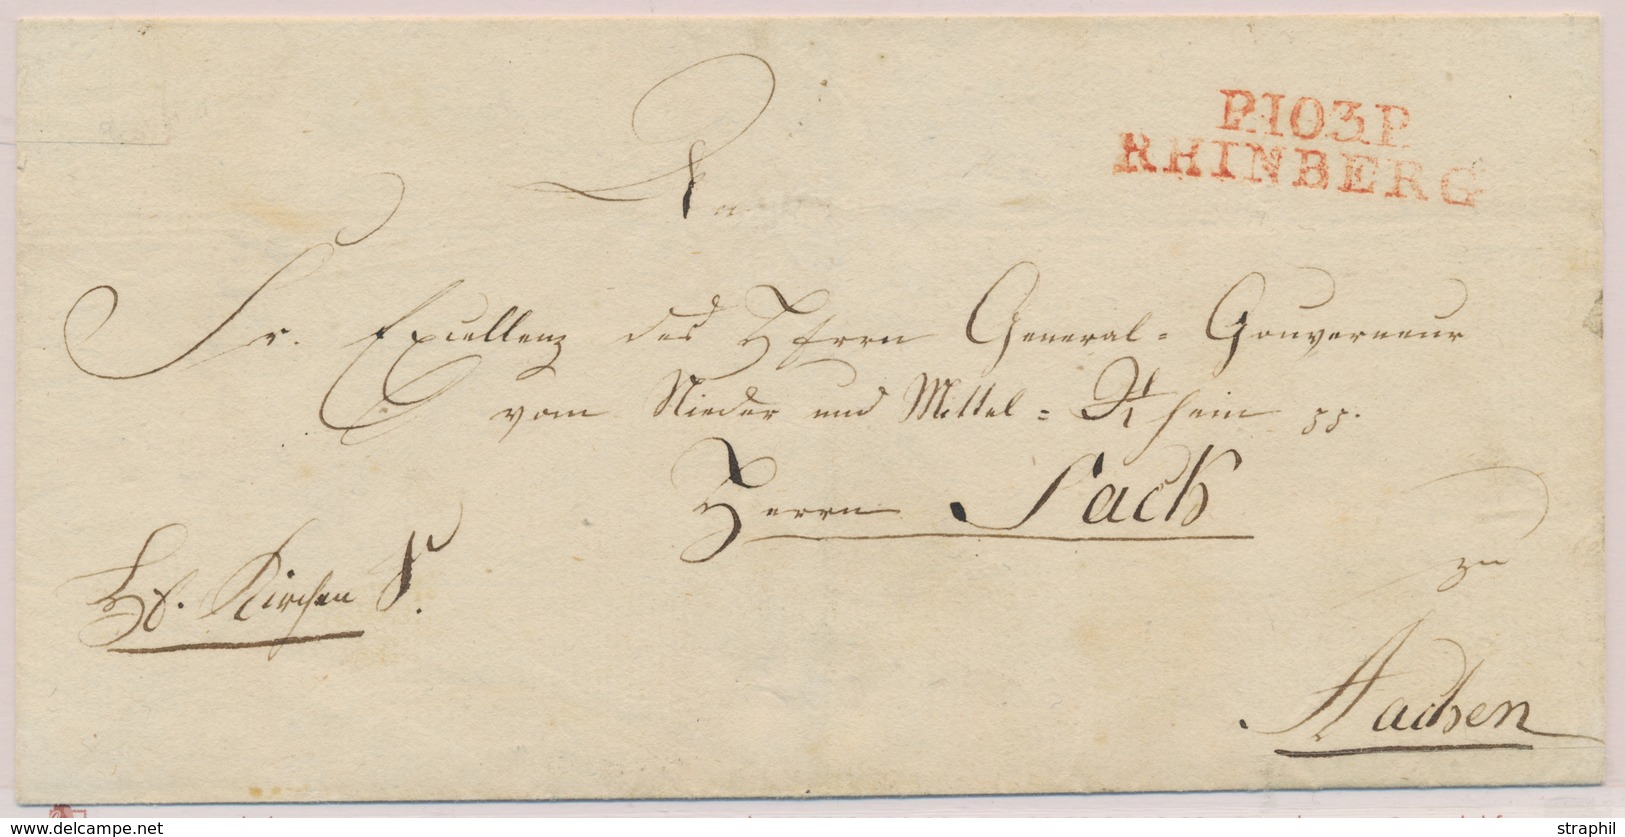 P.103.P.
RHINBERG
An
Sr. Excellenz des Herrn General-Gouverneur
vom Nieder und Mittel-Rhein pp.
Herrn Sack
zu
Kirchen
Aachen
straphil